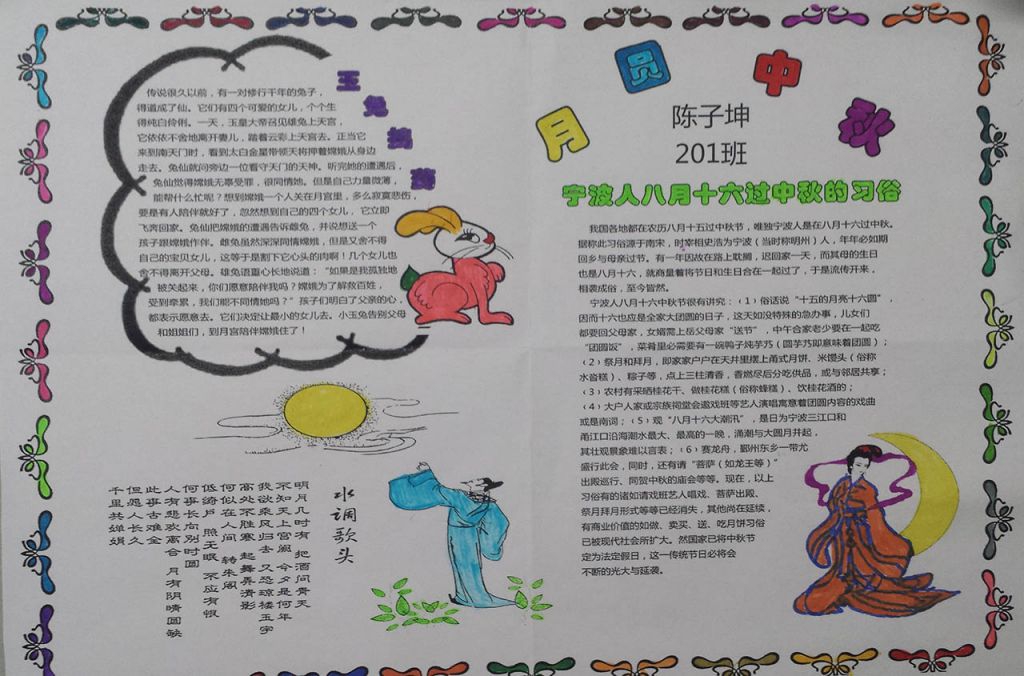 玉兔捣药
传说很久以前，有一对修行千年的兔子，
得道成了仙。它们有四个可爱的女儿，个个生
得纯白伶俐。一天，玉皇大帝召见雄兔上天宫，
它依依不舍地离开妻儿，踏着云彩上天宫去。正当它
来到南天门时，看到太白金星带领天将押着嫦娥从身边
走去。兔仙就问旁边一位看守天门的天神。听完她的遭遇后，
兔仙觉得嫦娥无辜受罪，很同情她。但是自己力量微薄，
能帮什么忙呢？想到嫦娥一个人关在月宫里，多么寂寞悲伤，
要是有人陪伴就好了，忽然想到自己的四个女儿，它立即
飞奔回家。兔仙把嫦娥的遭遇告诉雌兔，并说想送一个
孩子跟嫦娥作伴。雌兔虽然深深同情嫦娥，但是又舍不得
自己的宝贝女儿，这等于是割下它心头的肉啊！几个女儿也
舍不得离开父母。雄兔语重心长地说道：“如果是我孤独地
被关起来，你们愿意陪伴我吗？嫦娥为了解救百姓，
受到牵累，我们能不同情她吗？”孩子们明白了父亲的心，
都表示愿意去。它们决定让最小的女儿去。小玉兔告别父母
和姐姐们，到月宫陪伴嫦娥住了！
水调歌头
明月几时有 把酒问青天
不知天上宫阙 今夕是何年
我欲乘风归去 又恐琼楼玉宇
高处不胜寒 起舞弄清影
何似在人间 转朱阁
低绮户 照无眠 不应有恨
何事长向别时圆
人有悲欢离合 月有阴晴圆缺
此事古难全
但愿人长久
千里共婵娟
月圆中秋
陈子坤
201班
宁波人八月十六过中秋的习俗
我国各地都在农历八月十五过中秋节，唯独宁波人是在八月十六过中秋。
据称此习俗源于南宋，时宰相史浩为宁波（当时称明州）人，年年必如期
回乡与母亲过节。有一年因故在路上耽搁，迟回家一天，而其母的生日
也是八月十六，就商量着将节日和生日合在一起过了，于是流传开来，
相袭成俗，至今皆然。
宁波人八月十六中秋节很有讲究：（1）俗话说“十五的月亮十六圆”，
因而十六也应是全家大团圆的日子，这天如没特殊的急办事，儿女们
都要回父母家，女婿需上岳父母家“送节”，中午合家老少要在一起吃
“团圆饭”，菜肴里必需要有一碗鸭子炖芋艿（圆芋艿即意味着团圆）；
（2）祭月和拜月，即家家户户在天井里摆上甬式月饼、米馒头（俗称
水沓糕）、粽子等，点上三柱清香，香燃尽后分吃供品，或与邻居共享；
（3）农村有采晒桂花干、做桂花糕（俗称蜂糕）、饮桂花酒的；
（4）大户人家或宗族祠堂会邀戏班等艺人演唱寓意着团圆内容的戏曲
或是南词；（5）观“八月十六大潮汛”，是日为宁波三江口和
甬江口沿海潮水最大、最高的一晚，涌潮与大圆月并起，
其壮观景象难以言表；（6）赛龙舟，鄞州东乡一带尤
盛行此会，同时，还有请“菩萨（如龙王等）”
出殿巡行、同贺中秋的庙会等等。现在，以上
习俗有的诸如请戏班艺人唱戏、菩萨出殿、
祭月拜月形式等等已经消失，其他尚在延续，
有商业价值的如做、卖买、送、吃月饼习俗
已被现代社会所扩大。然国家已将中秋节
定为法定假日，这一传统节日必将会
不断的光大与延袭。